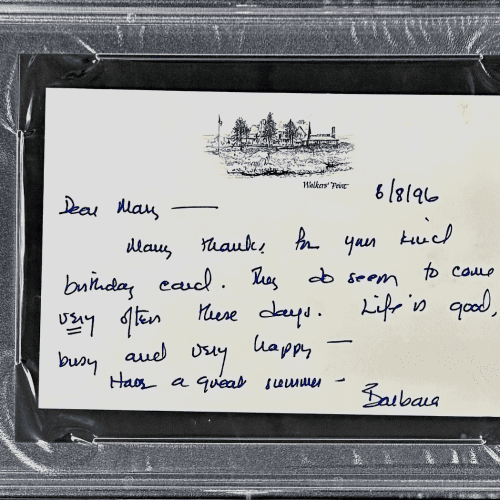 Walkers' Point
6/8/96
Dear Mary —
Many thanks for your kind
birthday card. They do seem to come
very often these days. Life is good,
busy and very happy —
Have a great summer —
Barbara